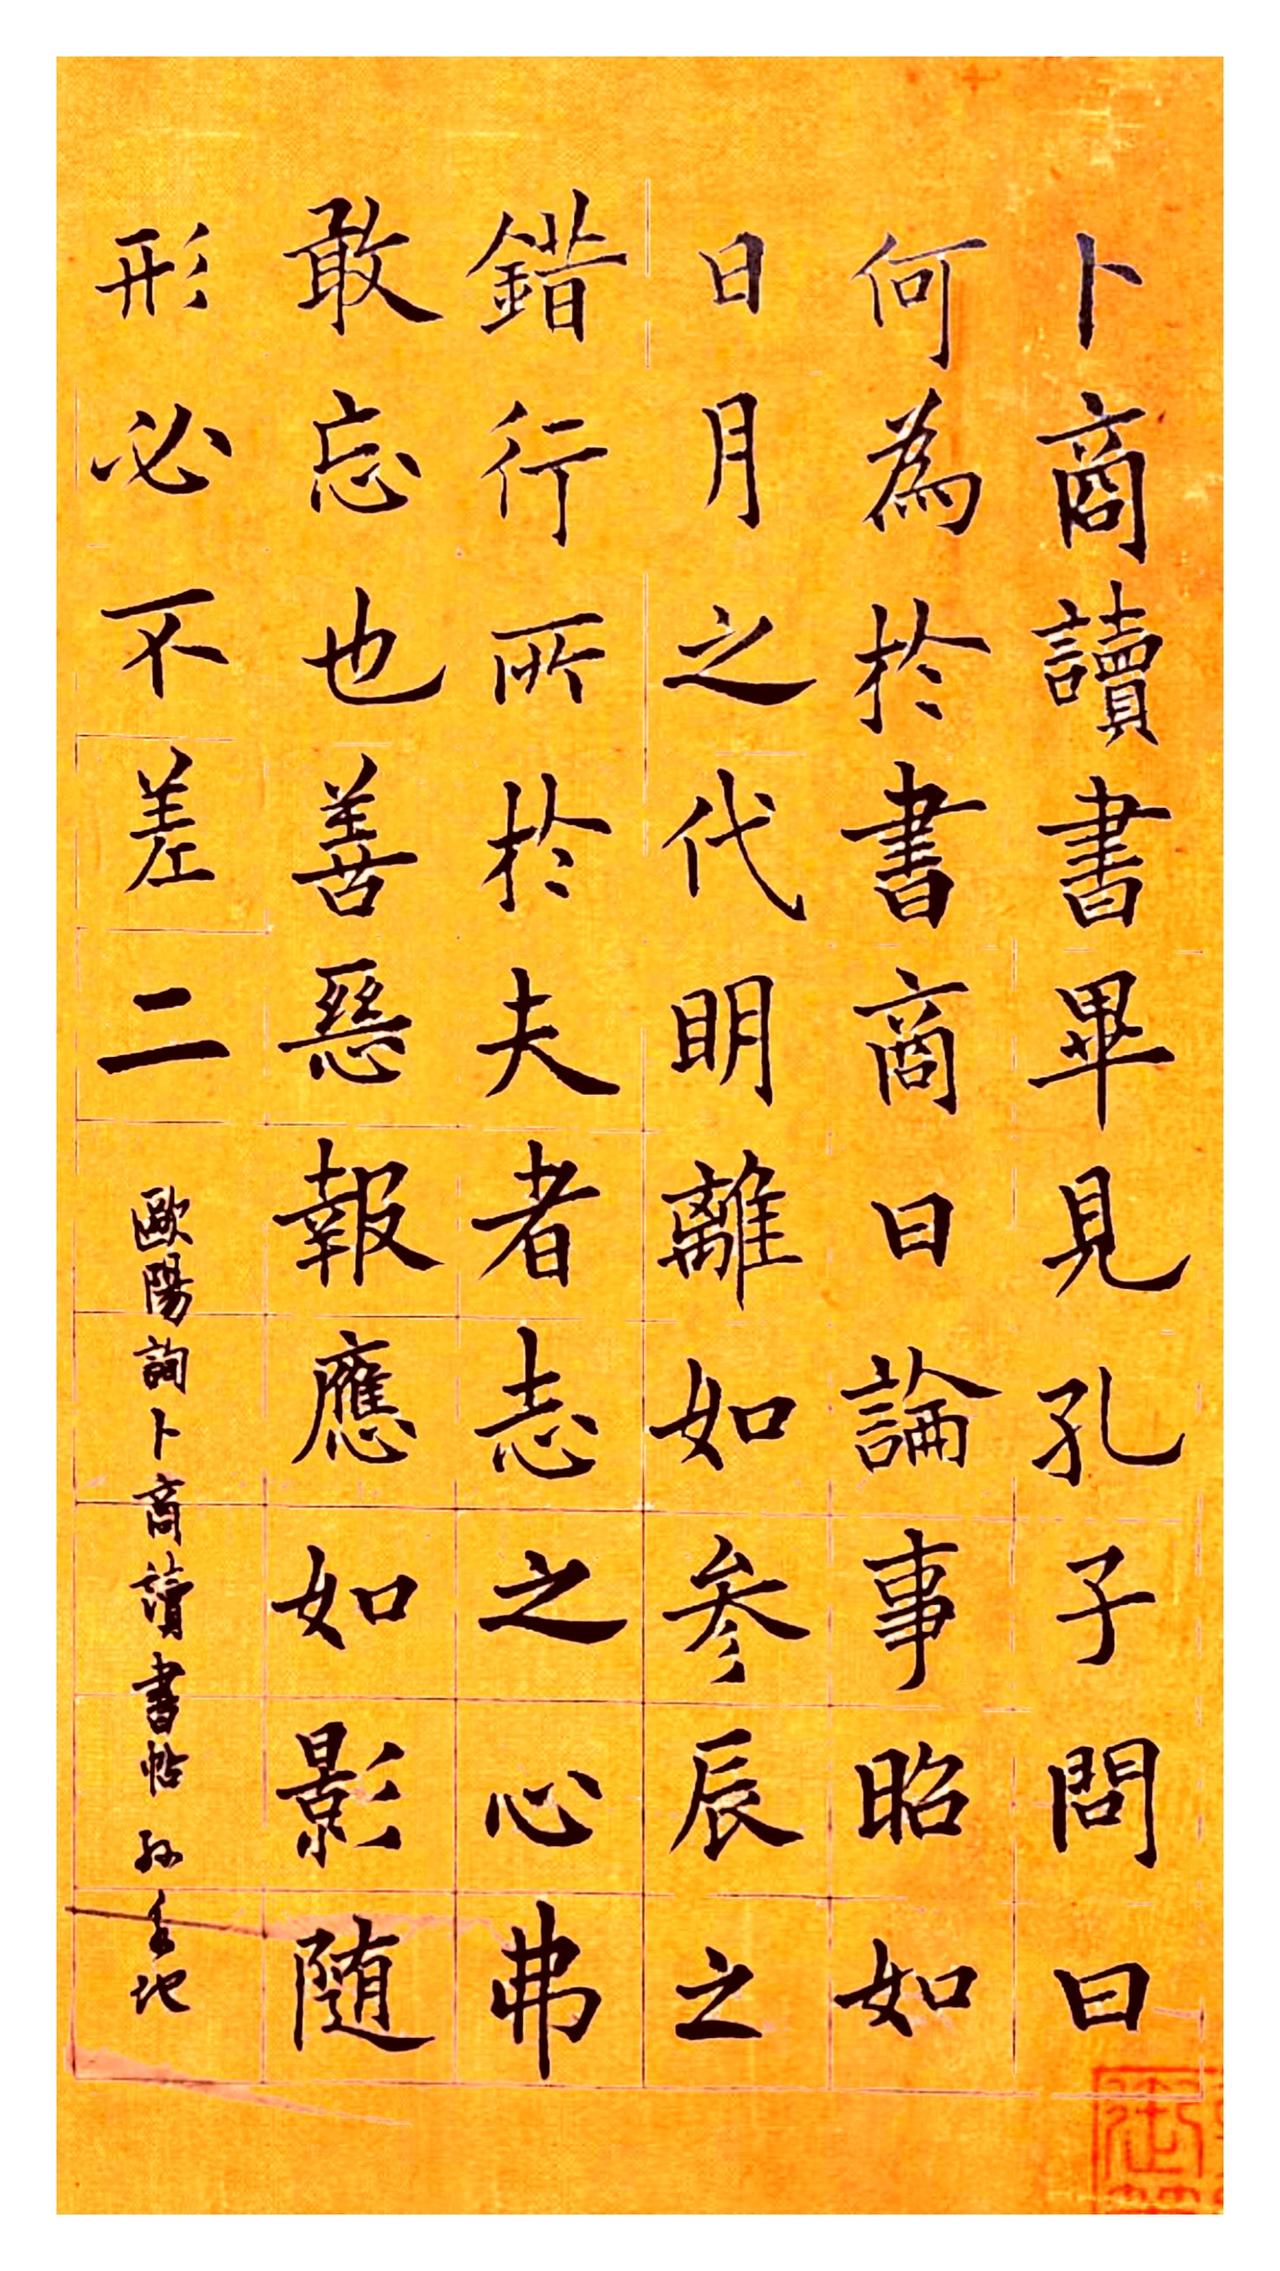 卜商讀書畢見孔子問曰
何為於書商曰論事昭如
日月之代明離如参辰之
錯行所於夫者志之心弗
敢忘也善惡報應如影随
形必不差二
歐陽詢卜商讀書帖